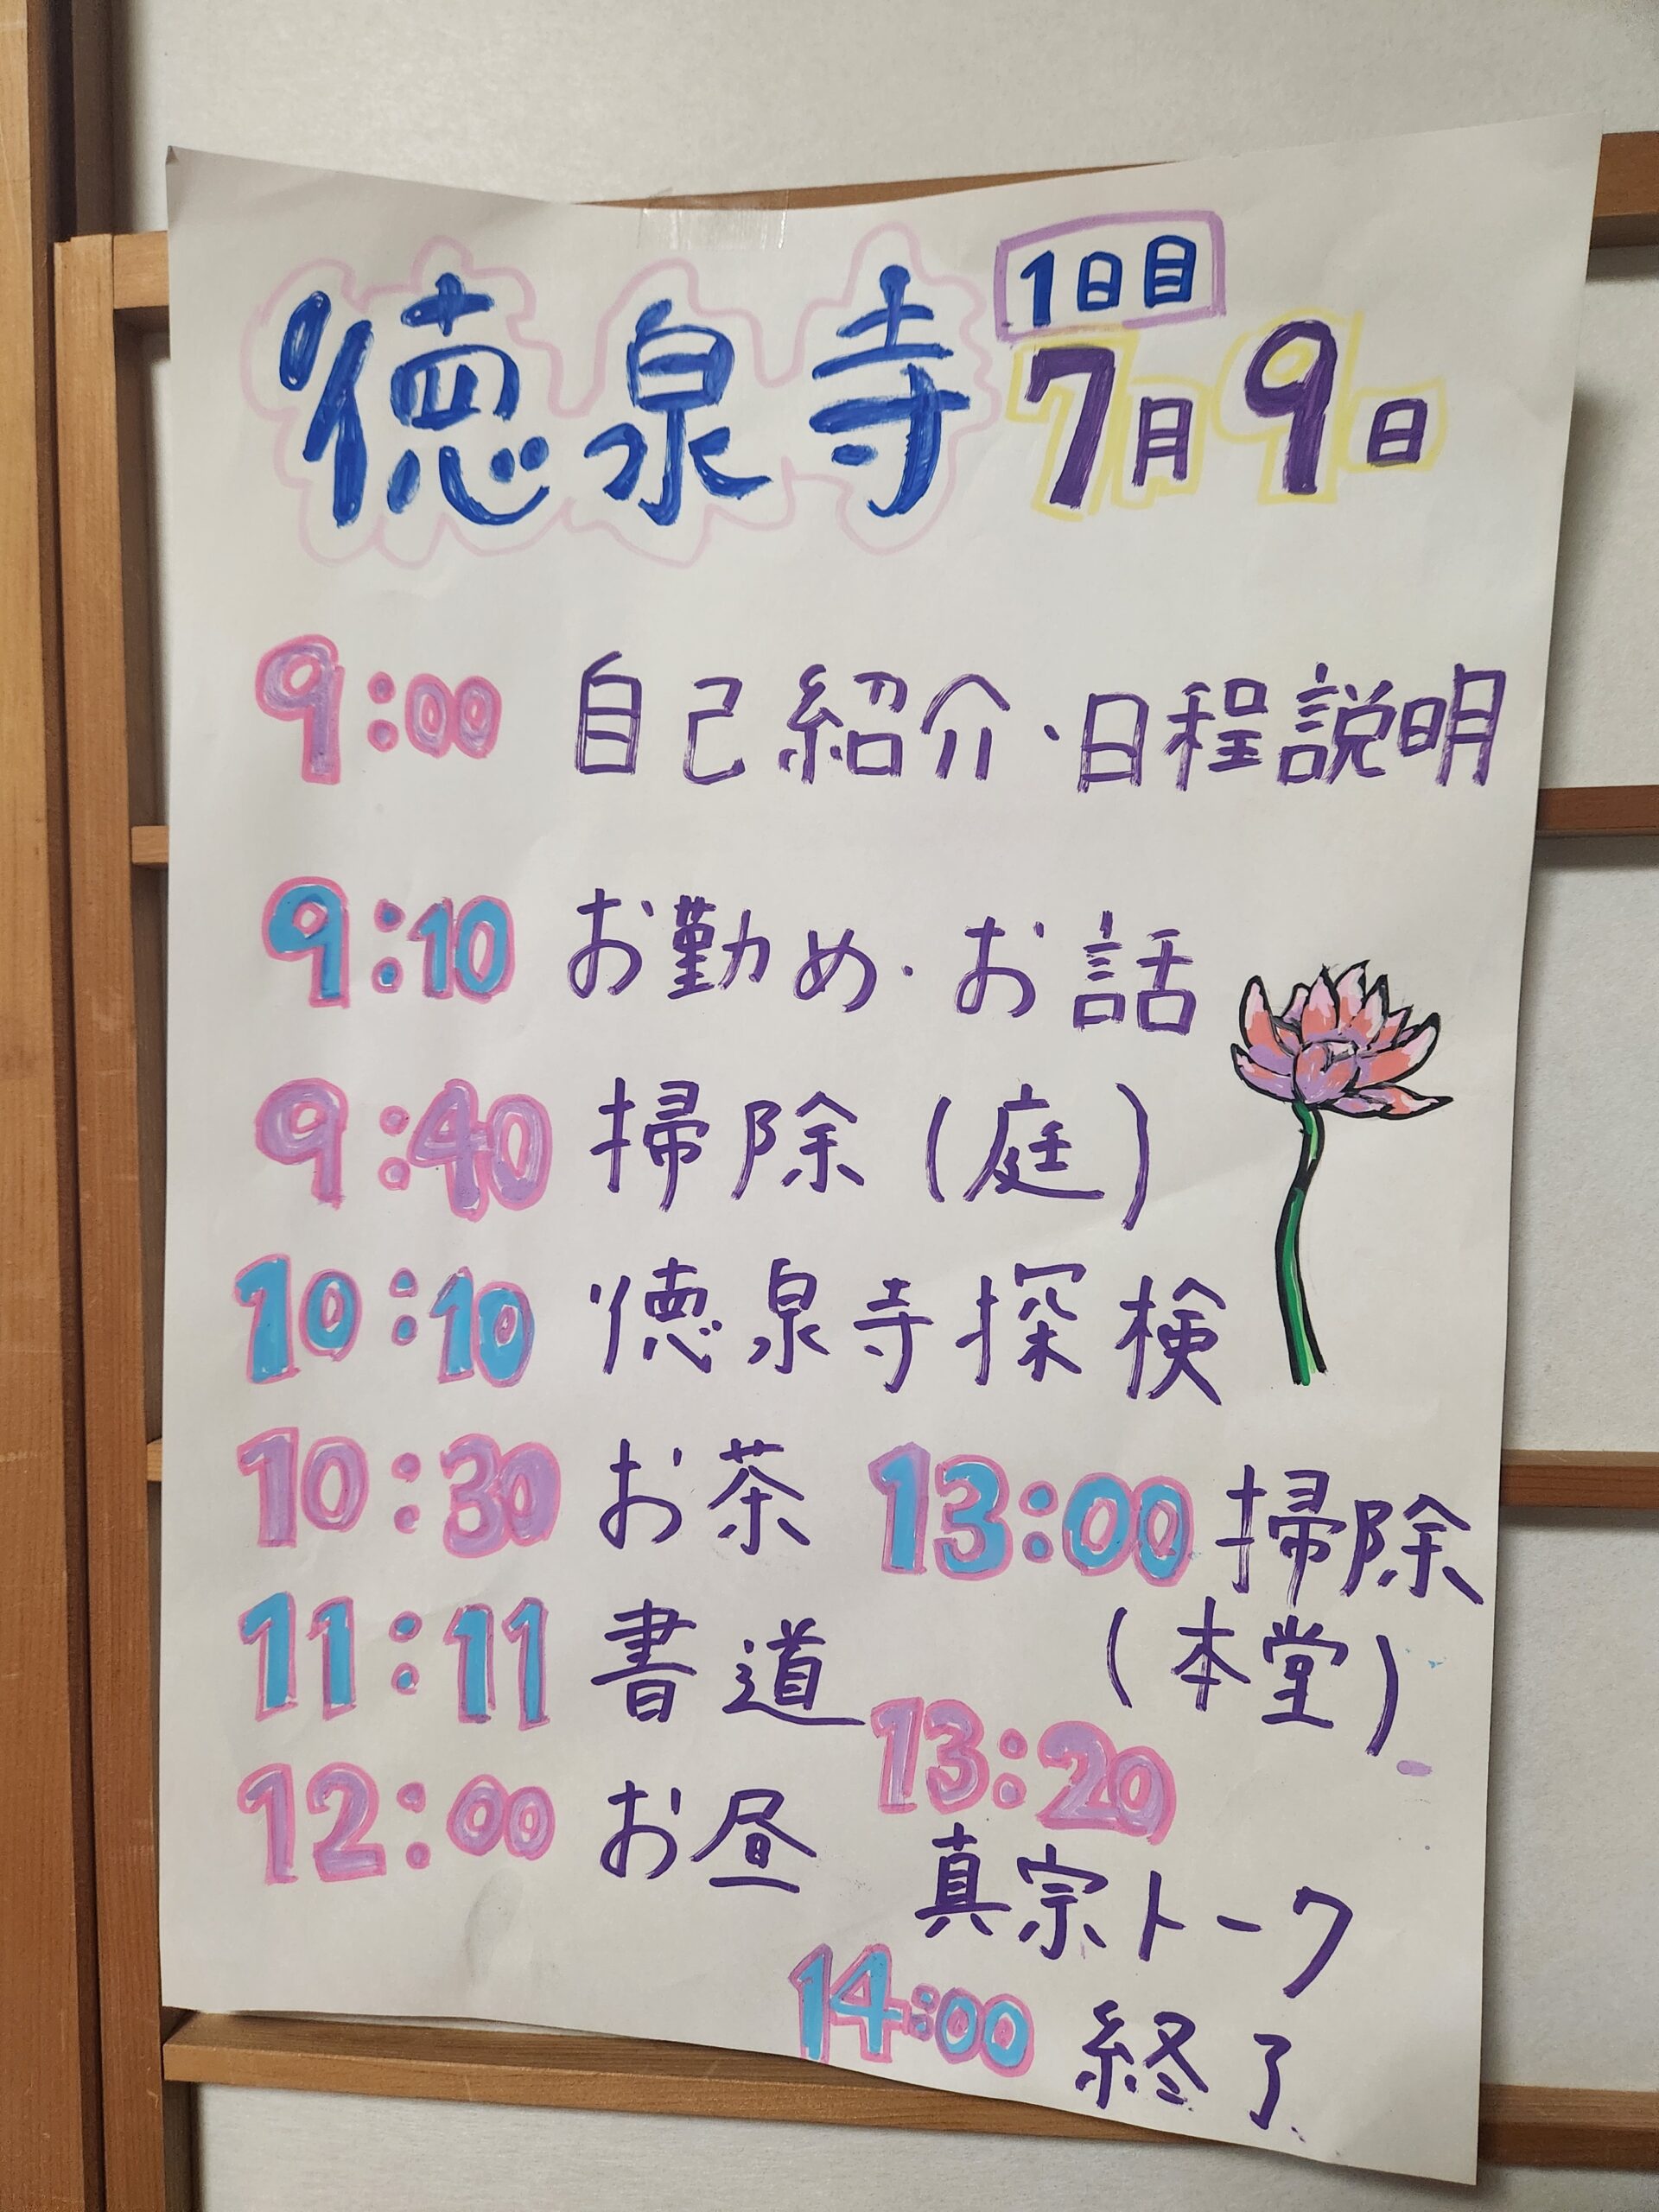 1日目
徳泉寺 7月9日
9:00 自己紹介・日程説明
9:10 お勤め・お話
9:40 掃除(庭)
10:10 徳泉寺探検
10:30 お茶
11:11 書道
12:00 お昼
13:00 掃除
(本堂)
13:20
真宗トーク
14:00 終了